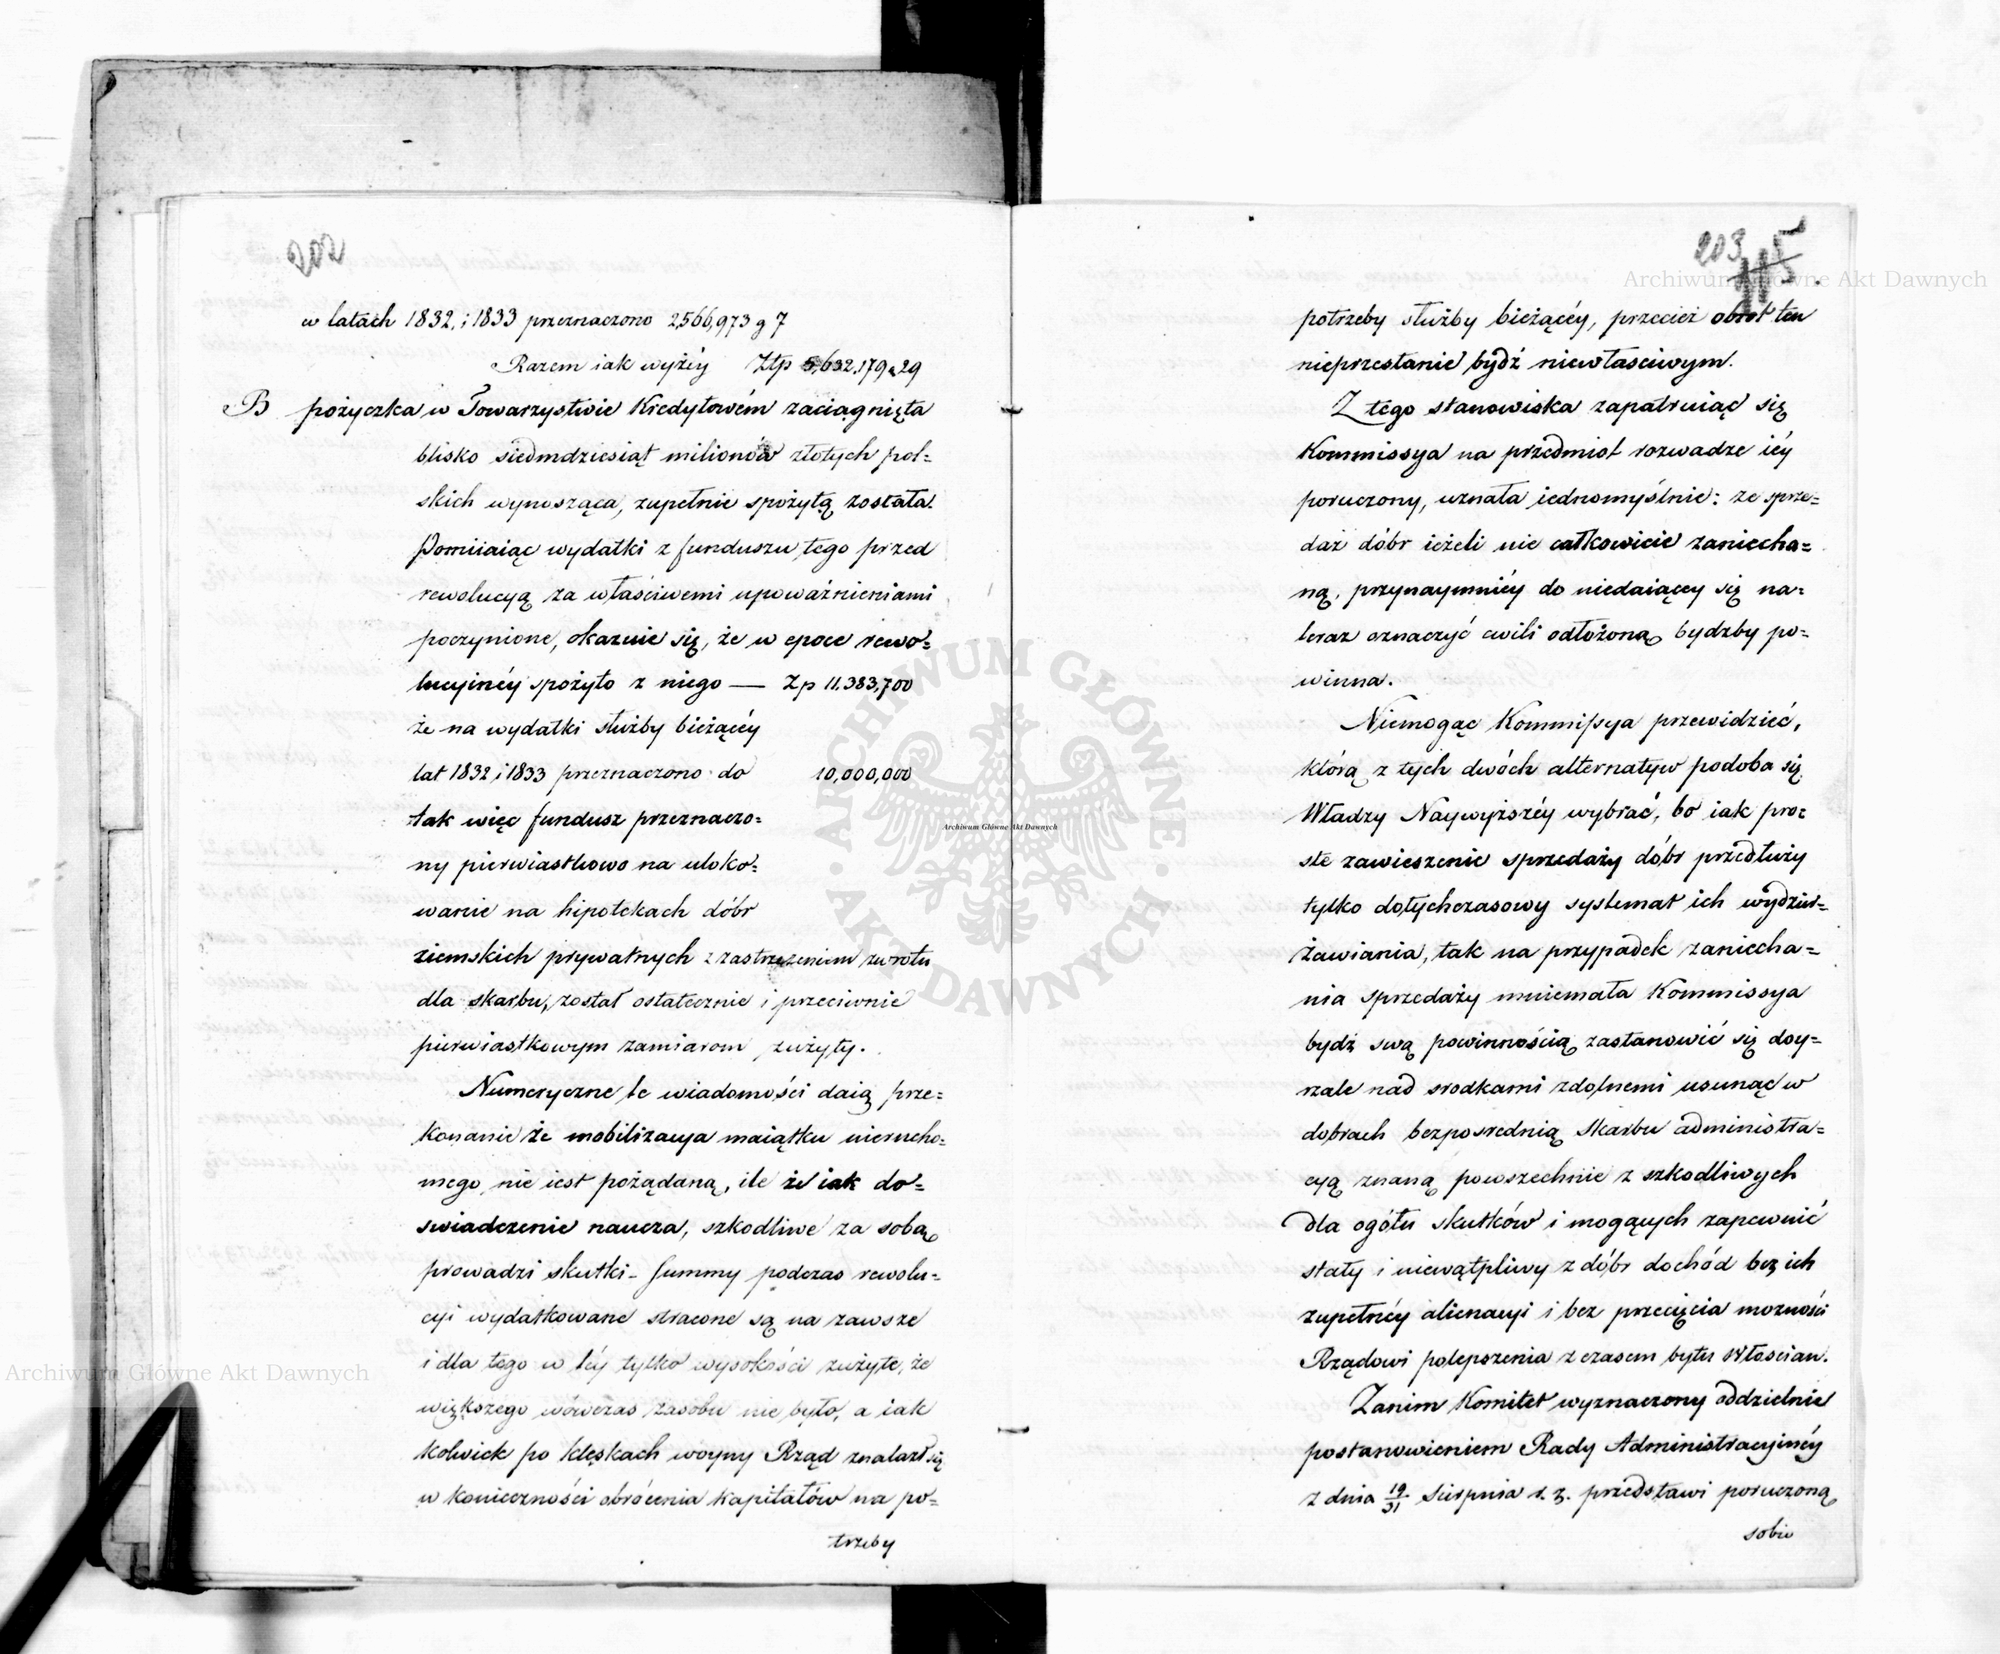 202
w latach 1832, i 1833 przeznaczono 2,566,973 g 7
Razem iak wyżéy Złp 5,632,179 „ 29
B pożyczka w Towarzystwie Kredytowém zaciągnięta
blisko siedmdziesiąt milionów złotych pol=
skich wynosząca, zupełnie spożytą została.
Pomiiaiąc wydatki z funduszu tego przed
rewolucyą za właściwemi upoważnieniami
poczynione, okazuie się, że w epoce rewo=
lucyinéy spożyto z niego — Zp 11.383,700
że na wydatki służby bieżącéy
lat 1832 i 1833 przeznaczono do 10,000,000
tak więc fundusz przeznaczo=
ny pierwiastkowo na uloko=
wanie na hipotekach dóbr
ziemskich prywatnych z zastrzeżeniem zwrotu
dla skarbu, został ostatecznie i przeciwnie
pierwiastkowym zamiarom zużyty.
Numeryczne te wiadomości daią prze=
konanie że mobilizacya maiątku nierucho=
mego nie iest pożądaną, ile że iak do=
swiadczenie naucza, szkodliwe za sobą
prowadzi skutki – Summy podczas rewolu=
cyi wydatkowane stracone są na zawsze
i dla tego w téy tylko wysokości zużyte, że
większego wówczas zasobu nie było, a iak
kolwiek po klęskach woyny Rząd znalazł się
w konieczności obrócenia kapitałów na po=
trzeby
203
potrzeby służby bieżącéy, przecież obrot ten
nieprzestanie bydź niewłasciwym.
Z tego stanowiska zapatruiąc się
Kommissya na przedmiot rozwadze iéy
poruczony, uznała iednomyślnie: ze sprze=
daż dóbr ieżeli nie całkowicie zaniecha=
ną, przynaymniéy do niedaiącey się na=
teraz oznaczyć cwili odłożoną bydzby po=
winna.
Niemogąc Kommissya przewidzieć,
którą z tych dwóch alternatyw podoba się
Władzy Naywyższéy wybrać, bo iak pro=
ste zawieszenie sprzedaży dóbr przedłuży
tylko dotychczasowy systemat ich wydzier=
żawiania, tak na przypadek zaniecha=
nia sprzedaży mniemała Kommissya
bydź swą powinnością zastanowić się doy=
rzale nad srodkami zdolnemi usunąć w
dobrach bezposrednią Skarbu administra=
cyą znaną powszechnie z szkodliwych
dla ogółu skutków i mogących zapewnić
stały i niewątpliwy z dóbr dochód bez ich
zupełnéy alienacyi i bez przecięcia mozności
Rządowi polepszenia z czasem bytu Włoscian.
Zanim Komitet wyznaczony oddzielnie
postanowieniem Rady Administracyinéy
z dnia 19/31 Sierpnia r. z. przedstawi poruczoną
sobie
Archiwum Główne Akt Dawnych
Archiwum Główne Akt Dawnych
Archiwum Główne Akt Dawnych
ARCHIWUM GŁÓWNE · AKT DAWNYCH ·